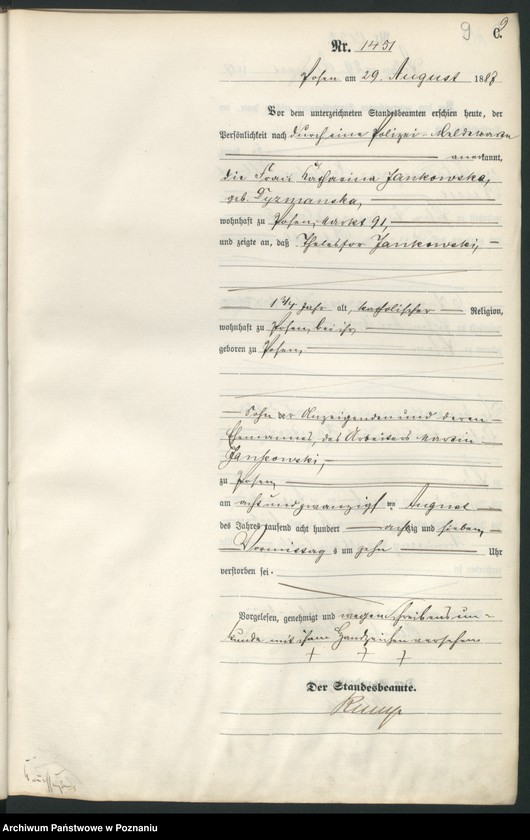 9
C.
9
Nr. 1451
Posen am 29. August 1887
Vor dem unterzeichneten Standesbeamten erschien heute, der
Persönlichkeit nach durch eine Polizei-Meldekarte
anerkannt,
die Frau Katharina Jankowska,
geb. Tyzmanska,
wohnhaft zu Posen, Markt 91,
und zeigte an, daß Thelesfor Jankowski,
1 3/4 Jahr alt, katholischer Religion,
wohnhaft zu Posen, bei ihr,
geboren zu Posen,
Sohn der Anzeigenden und deren
Ehemannes, des Arbeiters Martin
Jankowski,
zu Posen,
am achtundzwanzigsten August
des Jahres tausend acht hundert achtzig und sieben,
Vormittags um zehn Uhr
verstorben sei.
Vorgelesen, genehmigt und wegen Schreibensun-
kunde mit ihrem Handzeichen versehen
+ + +
Der Standesbeamte.
Archiwum Państwowe w Poznaniu